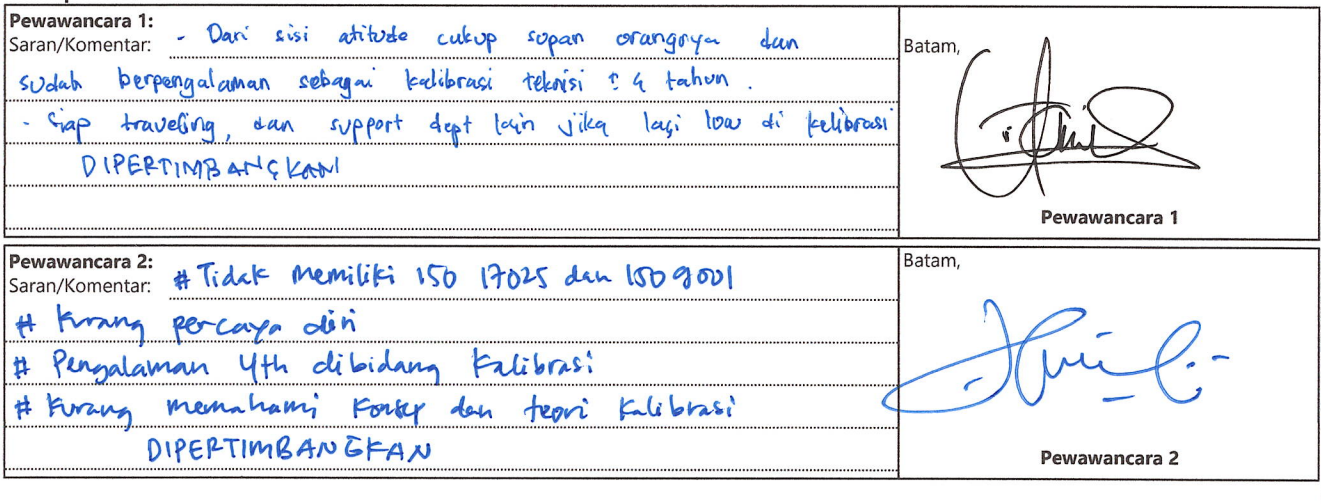 Pewawancara 1:
Saran/Komentar: - Dari sisi atitude cukup sopan orangnya dan
sudah berpengalaman sebagai kalibrasi teknisi ± 4 tahun.
- Siap traveling, dan support dept lain jika lagi low di kalibrasi
DIPERTIMBANGKAN
Batam,
Pewawancara 1
Pewawancara 2:
Saran/Komentar: # Tidak memiliki ISO 17025 dan ISO 9001
# Kurang percaya diri
# Pengalaman 4th dibidang Kalibrasi
# Kurang memahami Konsep dan teori Kalibrasi
DIPERTIMBANGKAN
Batam,
Pewawancara 2